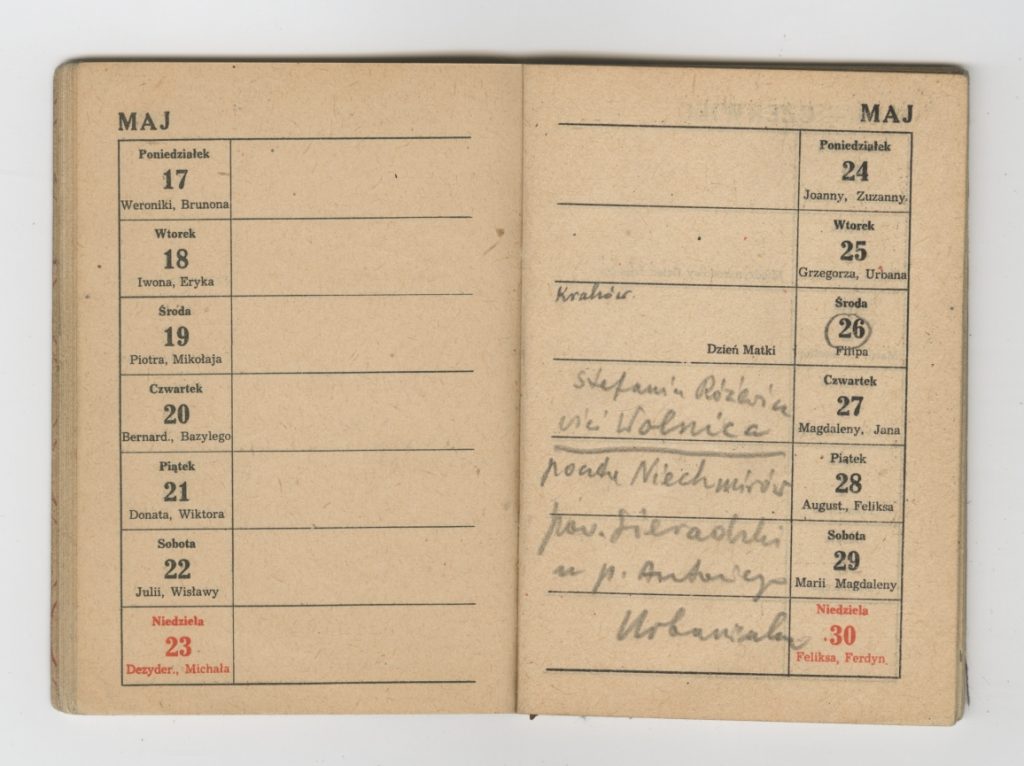 MAJ
Poniedziałek
17
Weroniki, Brunona
Wtorek
18
Iwona, Eryka
Środa
19
Piotra, Mikołaja
Czwartek
20
Bernard., Bazylego
Piątek
21
Donata, Wiktora
Sobota
22
Julii, Wisławy
Niedziela
23
Dezyder., Michała
MAJ
Poniedziałek
24
Joanny, Zuzanny
Wtorek
25
Grzegorza, Urbana
Kraków.
Dzień Matki
Środa
26
Filipa
Stefania Różewicz
wieś Wolnica
Czwartek
27
Magdaleny, Jana
poczta Niechmirów
Piątek
28
August., Feliksa
pow. Sieradzki
u p. Antoniego
Sobota
29
Marii Magdaleny
Urbaniaka
Niedziela
30
Feliksa, Ferdyn.